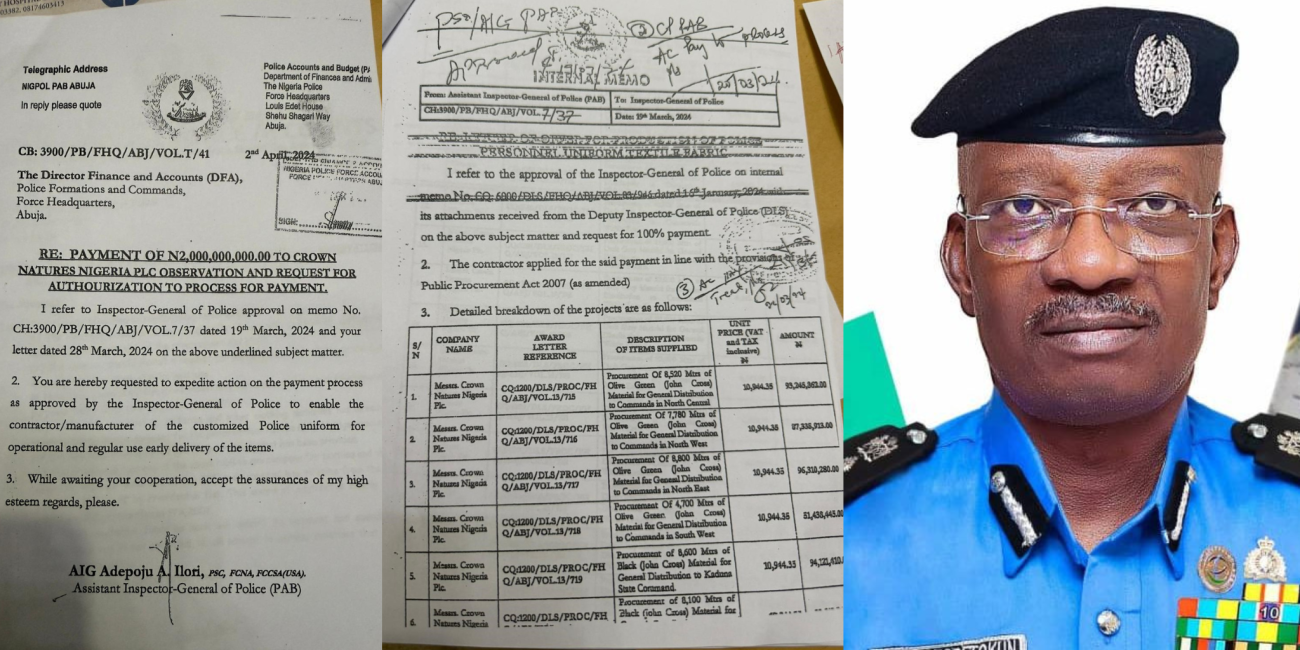 HOSPITAL
03382, 08174603413
Telegraphic Address
NIGPOL PAB ABUJA
In reply please quote
Police Accounts and Budget (PA
Department of Finances and Admi
The Nigeria Police
Force Headquarters
Louis Edet House
Shehu Shagari Way
Abuja.
CB: 3900/PB/FHQ/ABJ/VOL.T/41
2nd April, 2024
The Director Finance and Accounts (DFA),
Police Formations and Commands,
Force Headquarters,
Abuja.
NIGERIA POLICE FORCE ACCOU
SIGN:
RE: PAYMENT OF N2,000,000,000.00 TO CROWN
NATURES NIGERIA PLC OBSERVATION AND REQUEST FOR
AUTHORIZATION TO PROCESS FOR PAYMENT.
I refer to Inspector-General of Police approval on memo No.
CH:3900/PB/FHQ/ABJ/VOL.7/37 dated 19th March, 2024 and your
letter dated 28th March, 2024 on the above underlined subject matter.
2. You are hereby requested to expedite action on the payment process
as approved by the Inspector-General of Police to enable the
contractor/manufacturer of the customized Police uniform for
operational and regular use early delivery of the items.
3. While awaiting your cooperation, accept the assurances of my high
esteem regards, please.
AIG Adepoju A. Ilori, PSC, FCNA, FCCSA(USA).
Assistant Inspector-General of Police (PAB)
PSO/AIG PAB
② CP PAB
Approved
INTERNAL MEMO
From: Assistant Inspector-General of Police (PAB)
To: Inspector-General of Police
CH:3900/PB/FHQ/ABJ/VOL.7/37
Date: 19th March, 2024
RE: LETTER OF ORDER FOR PRODUCTION OF POLICE
PERSONNEL UNIFORM TEXTILE FABRIC
I refer to the approval of the Inspector-General of Police on internal
memo No. CQ. 5000/DLS/FHQ/ABJ/VOL. dated 16th January, 2024 with
its attachments received from the Deputy Inspector-General of Police (DLS)
on the above subject matter and request for 100% payment.
2. The contractor applied for the said payment in line with the provisions of
Public Procurement Act 2007 (as amended)
③ AC
3. Detailed breakdown of the projects are as follows:
S/N
COMPANY NAME
AWARD LETTER REFERENCE
DESCRIPTION OF ITEMS SUPPLIED
UNIT PRICE (VAT and TAX Inclusive) N
AMOUNT N
1. Messrs. Crown Natures Nigeria Plc. CQ:1200/DLS/PROC/FHQ/ABJ/VOL.13/715 Procurement Of 8,520 Mtrs of Olive Green (John Cross) Material for General Distribution to Commands in North Central 10,944.35 93,245,862.00
2. Messrs. Crown Natures Nigeria Plc. CQ:1200/DLS/PROC/FHQ/ABJ/VOL.13/716 Procurement Of 7,780 Mtrs of Olive Green (John Cross) Material for General Distribution to Commands in North West 10,944.35
3. Messrs. Crown Natures Nigeria Plc. CQ:1200/DLS/PROC/FHQ/ABJ/VOL.13/717 Procurement Of 8,800 Mtrs of Olive Green (John Cross) Material for General Distribution to Commands in North East 10,944.35 96,310,280.00
4. Messrs. Crown Natures Nigeria Plc. CQ:1200/DLS/PROC/FHQ/ABJ/VOL.13/718 Procurement Of 4,700 Mtrs of Olive Green (John Cross) Material for General Distribution to Commands in South West 10,944.35 51,438,445.00
5. Messrs. Crown Natures Nigeria Plc. CQ:1200/DLS/PROC/FHQ/ABJ/VOL.13/719 Procurement of 8,600 Mtrs of Black (John Cross) Material for General Distribution to Kaduna State Command. 10,944.35 94,121,410.
6. Messrs. Crown Natures Nigeria CQ:1200/DLS/PROC/FH Procurement of 8,100 Mtrs of Black (John Cross) Material for
10